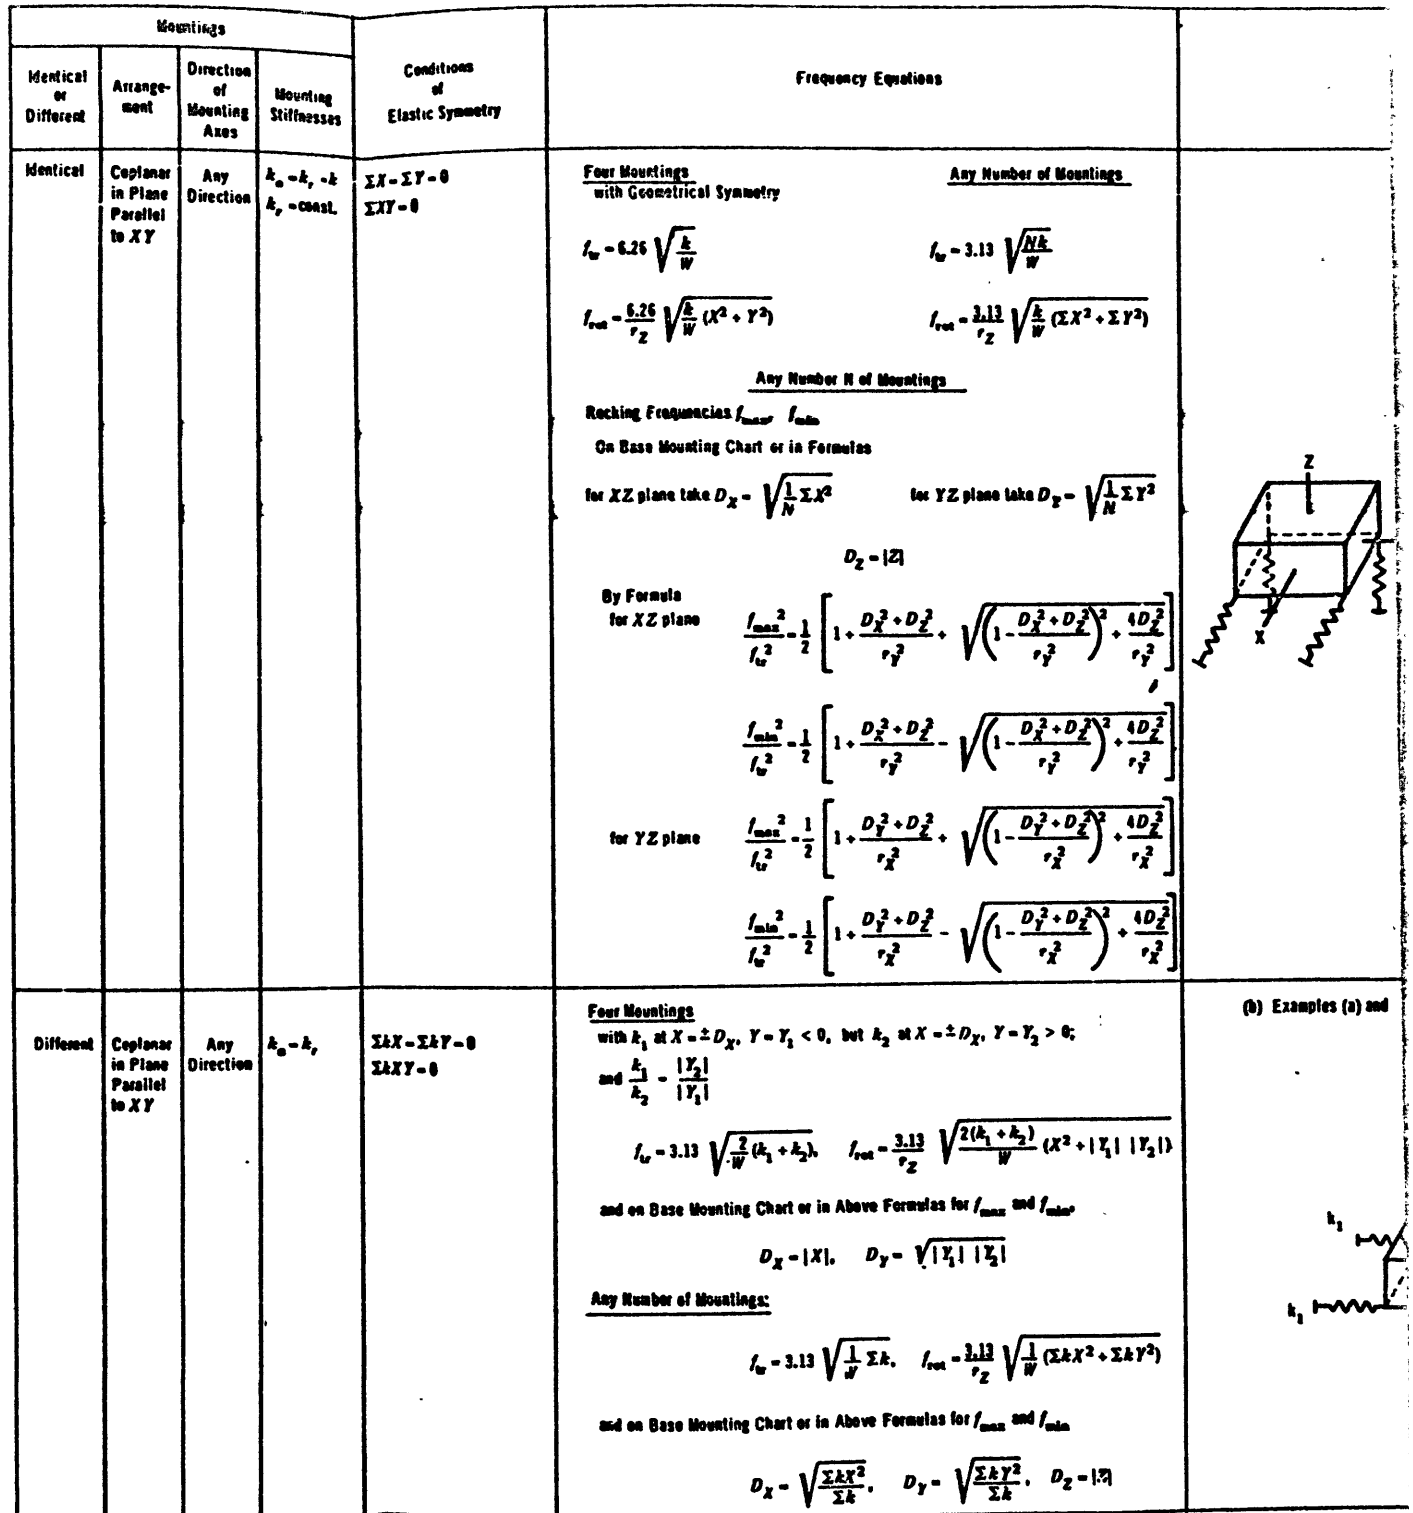 Mountings
Identical or Different
Arrange-ment
Direction of Mounting Axes
Mounting Stiffnesses
Conditions of Elastic Symmetry
Frequency Equations
Identical
Coplanar in Plane Parallel to XY
Any Direction
k_a = k_r = k
k_r = const.
ΣX = ΣY = 0
ΣXY = 0
Four Mountings
with Geometrical Symmetry
Any Number of Mountings
f_tr = 6.26 √(k/W)
f_tr = 3.13 √(Nk/W)
f_rot = 6.26/r_Z √(k/W (X² + Y²))
f_rot = 3.13/r_Z √(k/W (ΣX² + ΣY²))
Any Number N of Mountings
Rocking Frequencies f_max, f_min
On Base Mounting Chart or in Formulas
for XZ plane take D_X = √(1/N ΣX²)
for YZ plane take D_Y = √(1/N ΣY²)
D_Z = |Z|
By Formula
for XZ plane
f_max²/f_tr² = 1/2 [1 + (D_X² + D_Z²)/r_Y² + √((1 - (D_X² + D_Z²)/r_Y²)² + 4D_Z²/r_Y²)]
f_min²/f_tr² = 1/2 [1 + (D_X² + D_Z²)/r_Y² - √((1 - (D_X² + D_Z²)/r_Y²)² + 4D_Z²/r_Y²)]
for YZ plane
f_max²/f_tr² = 1/2 [1 + (D_Y² + D_Z²)/r_X² + √((1 - (D_Y² + D_Z²)/r_X²)² + 4D_Z²/r_X²)]
f_min²/f_tr² = 1/2 [1 + (D_Y² + D_Z²)/r_X² - √((1 - (D_Y² + D_Z²)/r_X²)² + 4D_Z²/r_X²)]
Z
X
Different
Coplanar in Plane Parallel to XY
Any Direction
k_a = k_r
ΣkX = ΣkY = 0
ΣkXY = 0
Four Mountings
with k_1 at X = ±D_X, Y = Y_1 < 0, but k_2 at X = ±D_X, Y = Y_2 > 0;
and k_1/k_2 = |Y_2|/|Y_1|
f_tr = 3.13 √(2/W (k_1 + k_2)), f_rot = 3.13/r_Z √(2(k_1 + k_2)/W (X² + |Y_1| |Y_2|))
and on Base Mounting Chart or in Above Formulas for f_max and f_min,
D_X = |X|, D_Y = √(|Y_1| |Y_2|)
Any Number of Mountings:
f_tr = 3.13 √(1/W Σk), f_rot = 3.13/r_Z √(1/W (ΣkX² + ΣkY²))
and on Base Mounting Chart or in Above Formulas for f_max and f_min
D_X = √(ΣkX²/Σk), D_Y = √(ΣkY²/Σk), D_Z = |Z|
(b) Examples (a) and
k_1
k_1